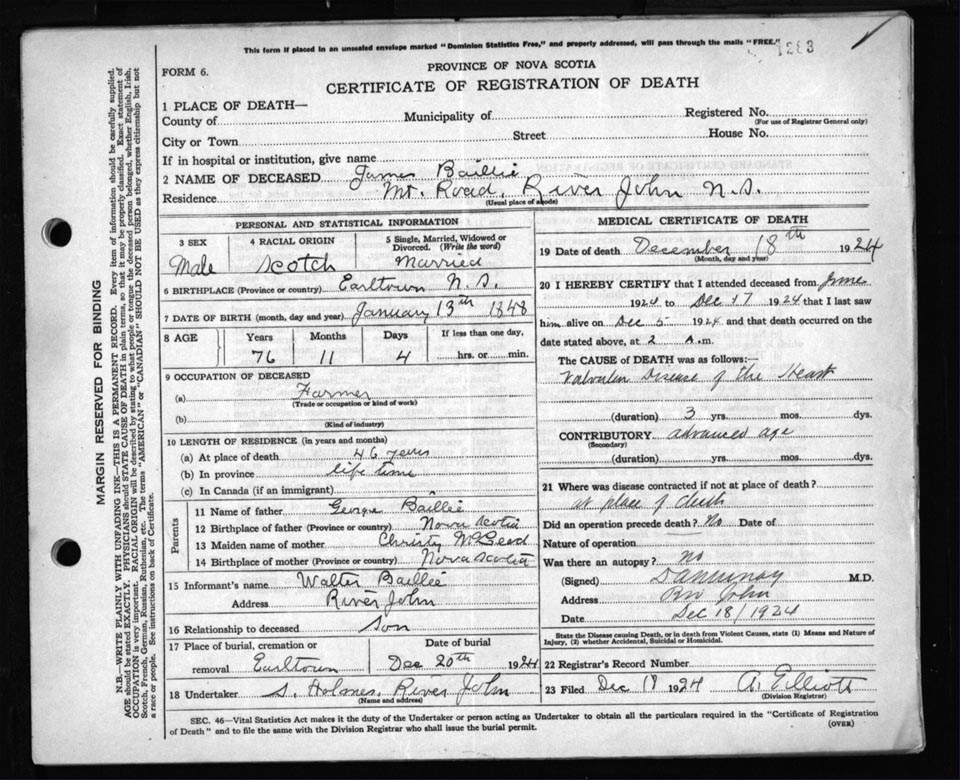 This form if placed in an unsealed envelope marked "Dominion Statistics Free," and properly addressed, will pass through the mails "FREE."
1283
PROVINCE OF NOVA SCOTIA
FORM 6.
CERTIFICATE OF REGISTRATION OF DEATH
1 PLACE OF DEATH—
County of Municipality of Registered No.
(For use of Registrar General only)
City or Town Street House No.
If in hospital or institution, give name
2 NAME OF DECEASED James Baillie
Residence Mt. Road, River John N.S.
(Usual place of abode)
PERSONAL AND STATISTICAL INFORMATION
3 SEX 4 RACIAL ORIGIN 5 Single, Married, Widowed or Divorced. (Write the word)
Male Scotch Married
6 BIRTHPLACE (Province or country) Earltown N.S.
7 DATE OF BIRTH (month, day and year) January 13th 1848
8 AGE Years Months Days If less than one day,
76 11 4 hrs. or min.
9 OCCUPATION OF DECEASED
(a) Farmer
(Trade or occupation or kind of work)
(b)
(Kind of industry)
10 LENGTH OF RESIDENCE (in years and months)
(a) At place of death 46 years
(b) In province life time
(c) In Canada (if an immigrant)
Parents
11 Name of father George Baillie
12 Birthplace of father (Province or country) Nova Scotia
13 Maiden name of mother Christy McLeod
14 Birthplace of mother (Province or country) Nova Scotia
15 Informant's name Walter Baillie
Address River John
16 Relationship to deceased Son
17 Place of burial, cremation or removal Earltown
Date of burial Dec 20th 1924
18 Undertaker S. Holmes, River John
(Name and address)
MEDICAL CERTIFICATE OF DEATH
19 Date of death December 18th 1924
(Month, day and year)
20 I HEREBY CERTIFY that I attended deceased from June
1924 to Dec 17 1924 that I last saw
him alive on Dec 5 1924 and that death occurred on the
date stated above, at 2 A.m.
The CAUSE of DEATH was as follows:—
Valvular Disease of the Heart
(duration) 3 yrs. mos. dys.
CONTRIBUTORY advanced age
(Secondary)
(duration) yrs. mos. dys.
21 Where was disease contracted if not at place of death?
at place of death
Did an operation precede death? No Date of
Nature of operation
Was there an autopsy? no
(Signed) M.D.
Address Riv John
Date Dec 18/1924
State the Disease causing Death, or in death from Violent Causes, state (1) Means and Nature of Injury, (2) whether Accidental, Suicidal or Homicidal.
22 Registrar's Record Number
23 Filed Dec 18 1924 A. Elliott
(Division Registrar)
SEC. 46—Vital Statistics Act makes it the duty of the Undertaker or person acting as Undertaker to obtain all the particulars required in the "Certificate of Registration
of Death" and to file the same with the Division Registrar who shall issue the burial permit.
(OVER)
MARGIN RESERVED FOR BINDING
N.B.—WRITE PLAINLY WITH UNFADING INK—THIS IS A PERMANENT RECORD. Every item of information should be carefully supplied.
AGE should be stated EXACTLY. PHYSICIANS should STATE CAUSE OF DEATH in plain terms, so that it may be properly classified. Exact statement of
OCCUPATION is very important. RACIAL ORIGIN will be described by stating to what people or tongue the deceased person belonged, whether English, Irish,
Scotch, French, German, Russian, Ruthenian, etc. The terms "AMERICAN" or "CANADIAN" SHOULD NOT BE USED as they express citizenship but not
a race or people. See instructions on back of Certificate.